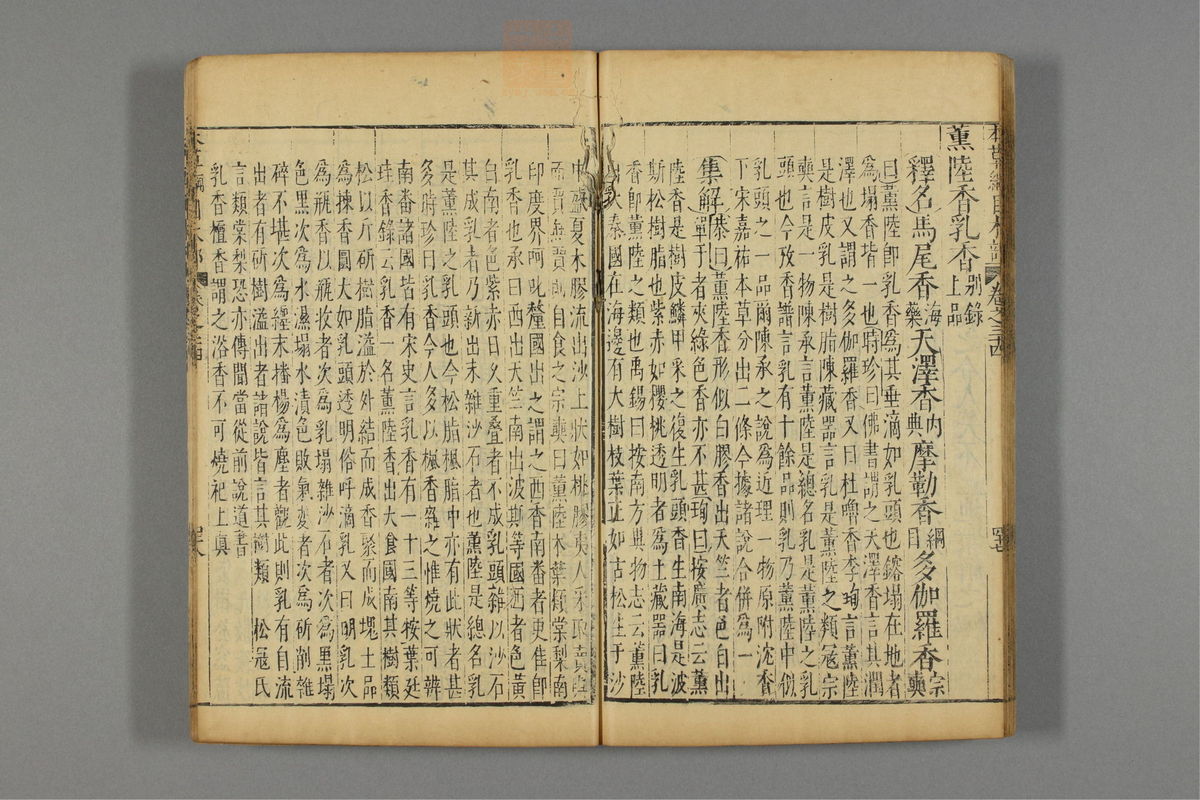 本草綱目木部 卷之三十四 四十七
薰陸香乳香別錄上品
釋名馬尾香海藥天澤香內典摩勒香綱目多伽羅香宗奭
曰薰陸即乳香為其垂滴如乳頭也鎔塌在地者
為塌香皆一也時珍曰佛書謂之天澤香言其潤
澤也又謂之多伽羅香又曰杜嚕香李珣言薰陸
是樹皮乳是樹脂陳藏器言乳是薰陸之類寇宗
奭言是一物陳承言薰陸是總名乳是薰陸之乳
頭也今攷香譜言乳有十餘品則乳乃薰陸中似
乳頭之一品爾陳承之說為近理一物原附沈香
下宋嘉祐本草分出二條今據諸說合併為一
集解恭曰薰陸香形似白膠香出天竺者色白出
單于者夾綠色香亦不甚珣曰按廣志云薰
陸香是樹皮鱗甲采之復生乳頭香生南海是波
斯松樹脂也紫赤如櫻桃透明者為上藏器曰乳
香即薰陸之類也禹錫曰按南方異物志云薰陸
出大秦國在海邊有大樹枝葉正如古松生于沙
中盛夏木膠流出沙上狀如桃膠夷人采取賣與
商賈無賈則自食之宗奭曰薰陸木葉類棠梨南
印度界阿吒釐國出之謂之西香南番者更佳即
乳香也承曰西出天竺南出波斯等國西者色黃
白南者色紫赤日久重疊者不成乳頭雜以沙石
其成乳者乃新出未雜沙石者也薰陸是總名乳
是薰陸之乳頭也今松脂楓脂中亦有此狀者甚
多時珍曰乳香今人多以楓香雜之惟燒之可辨
南番諸國皆有宋史言乳香有一十三等按葉廷
珪香錄云乳香一名薰陸香出大食國南其樹類
松以斤斫樹脂溢於外結而成香聚而成塊上品
為揀香圓大如乳頭透明俗呼滴乳又曰明乳次
為瓶香以瓶收者次為乳塌雜沙石者次為黑塌
色黑次為水濕塌水漬色敗氣變者次為斫削雜
碎不堪次為纏末播揚為塵者觀此則乳有自流
出者有斫樹溢出者諸說皆言其樹類松寇氏
言類棠梨恐亦傳聞當從前說道書
乳香檀香謂之浴香不可燒祀上真